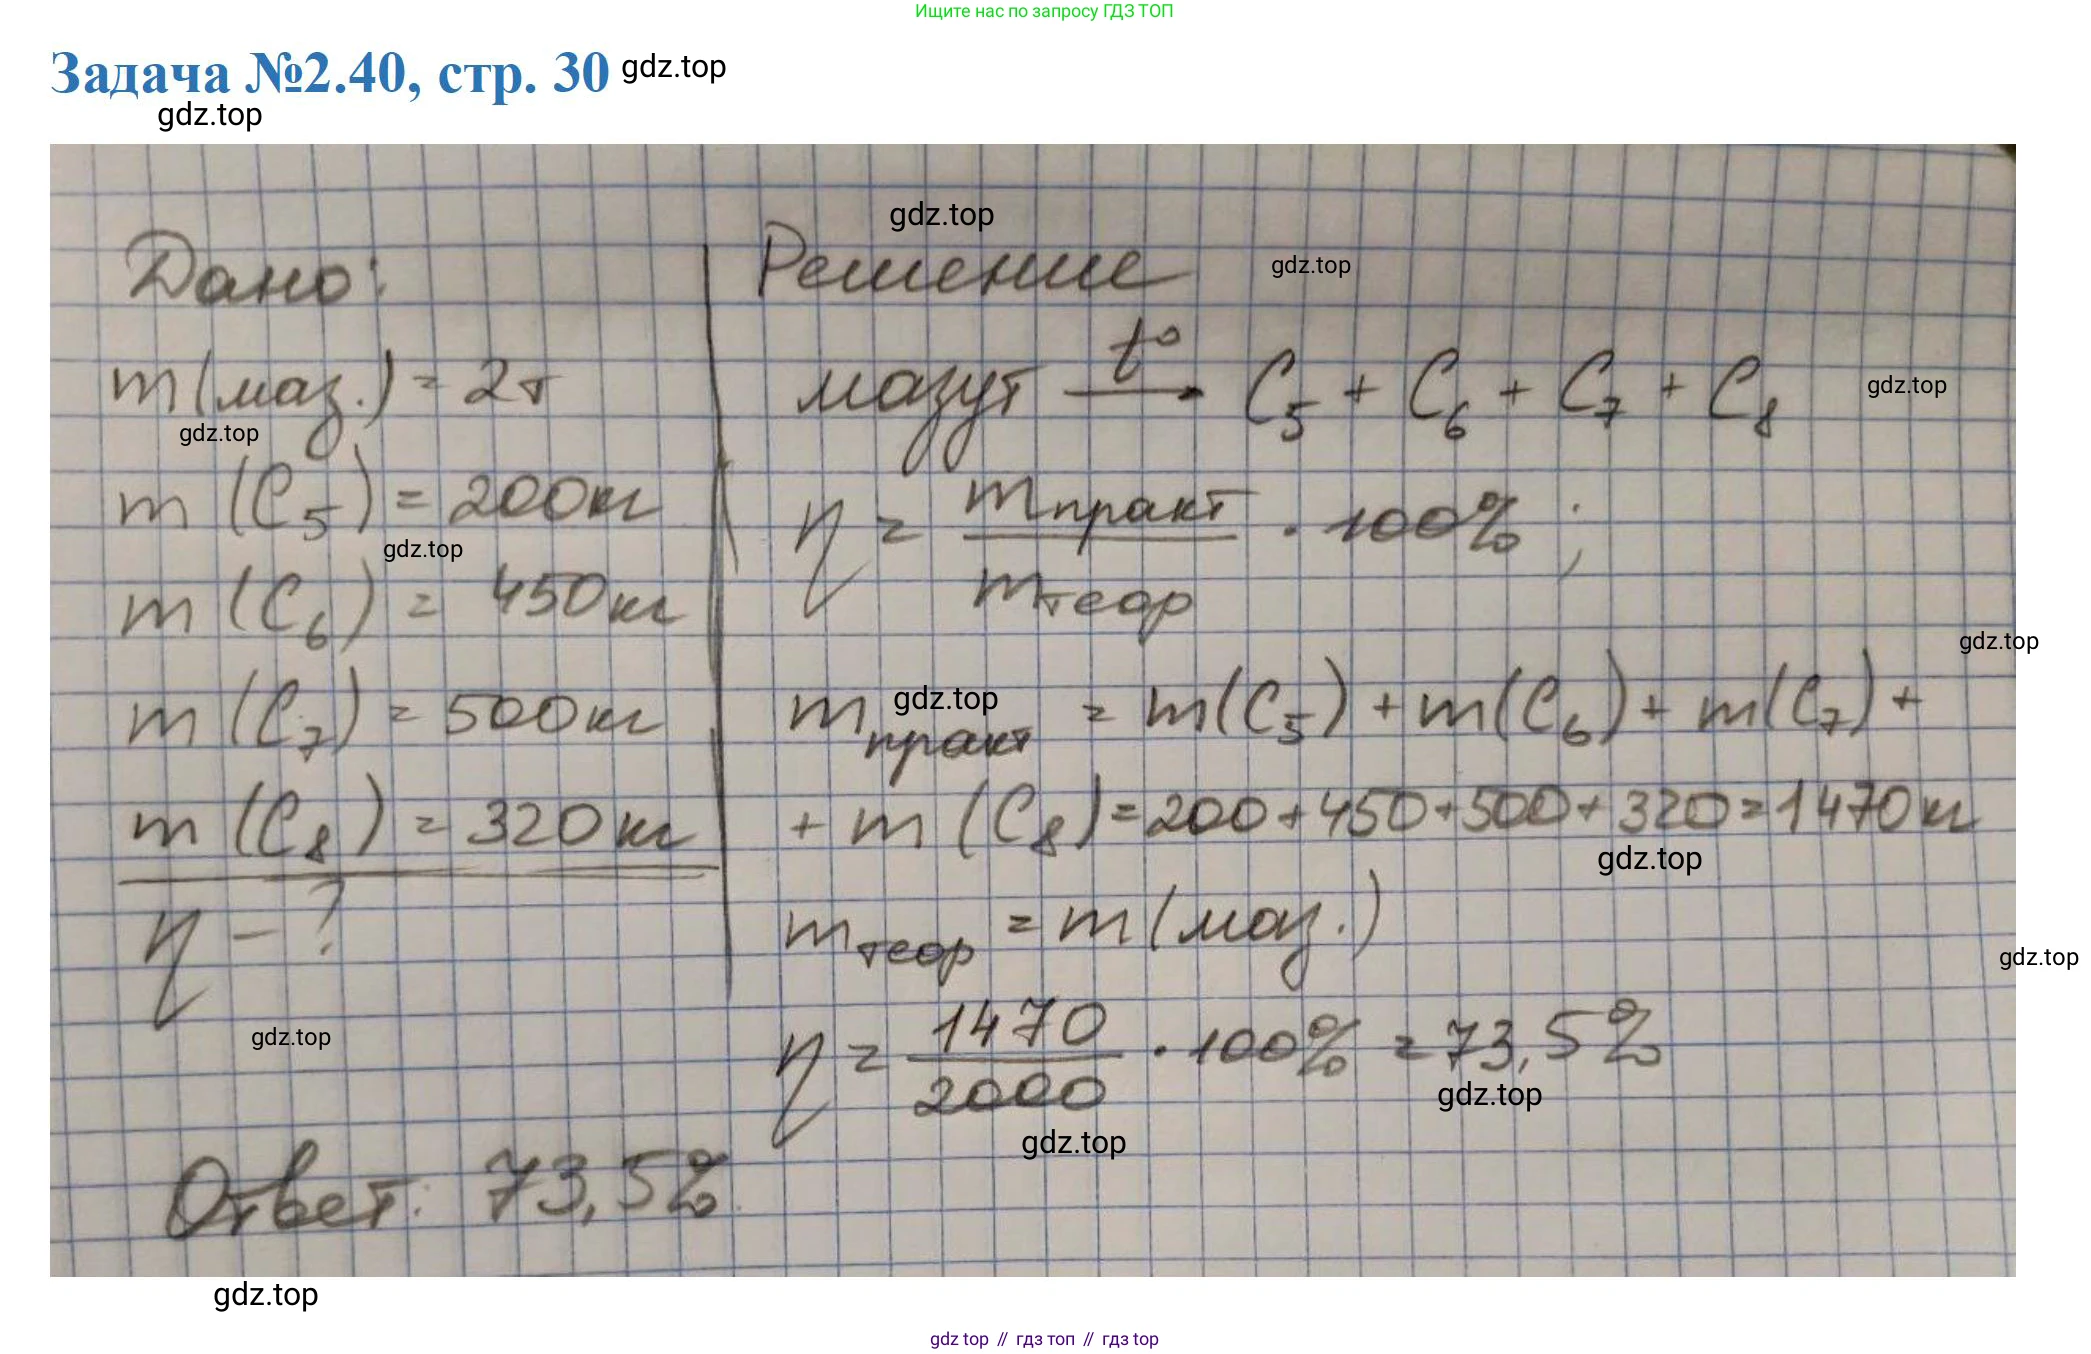 Ищите нас по запросу ГДЗ ТОП
Задача №2.40, стр. 30 gdz.top
gdz.top
gdz.top
Дано:
m(маз.) = 2т
gdz.top
m (C₅) = 200кг
gdz.top
m (C₆) = 450кг
m (C₇) = 500кг
m (C₈) = 320кг
η - ?
gdz.top
Решение
gdz.top
мазут t° → C₅ + C₆ + C₇ + C₈
gdz.top
η = mпракт / mтеор · 100% ;
gdz.top
gdz.top
mпракт = m(C₅) + m(C₆) + m(C₇) +
+ m (C₈) = 200+450+500+320=1470кг
gdz.top
mтеор = m(маз.)
gdz.top
η = 1470 / 2000 · 100% = 73,5%
gdz.top
gdz.top
Ответ: 73,5%
gdz.top
gdz top // гдз топ // гдз top